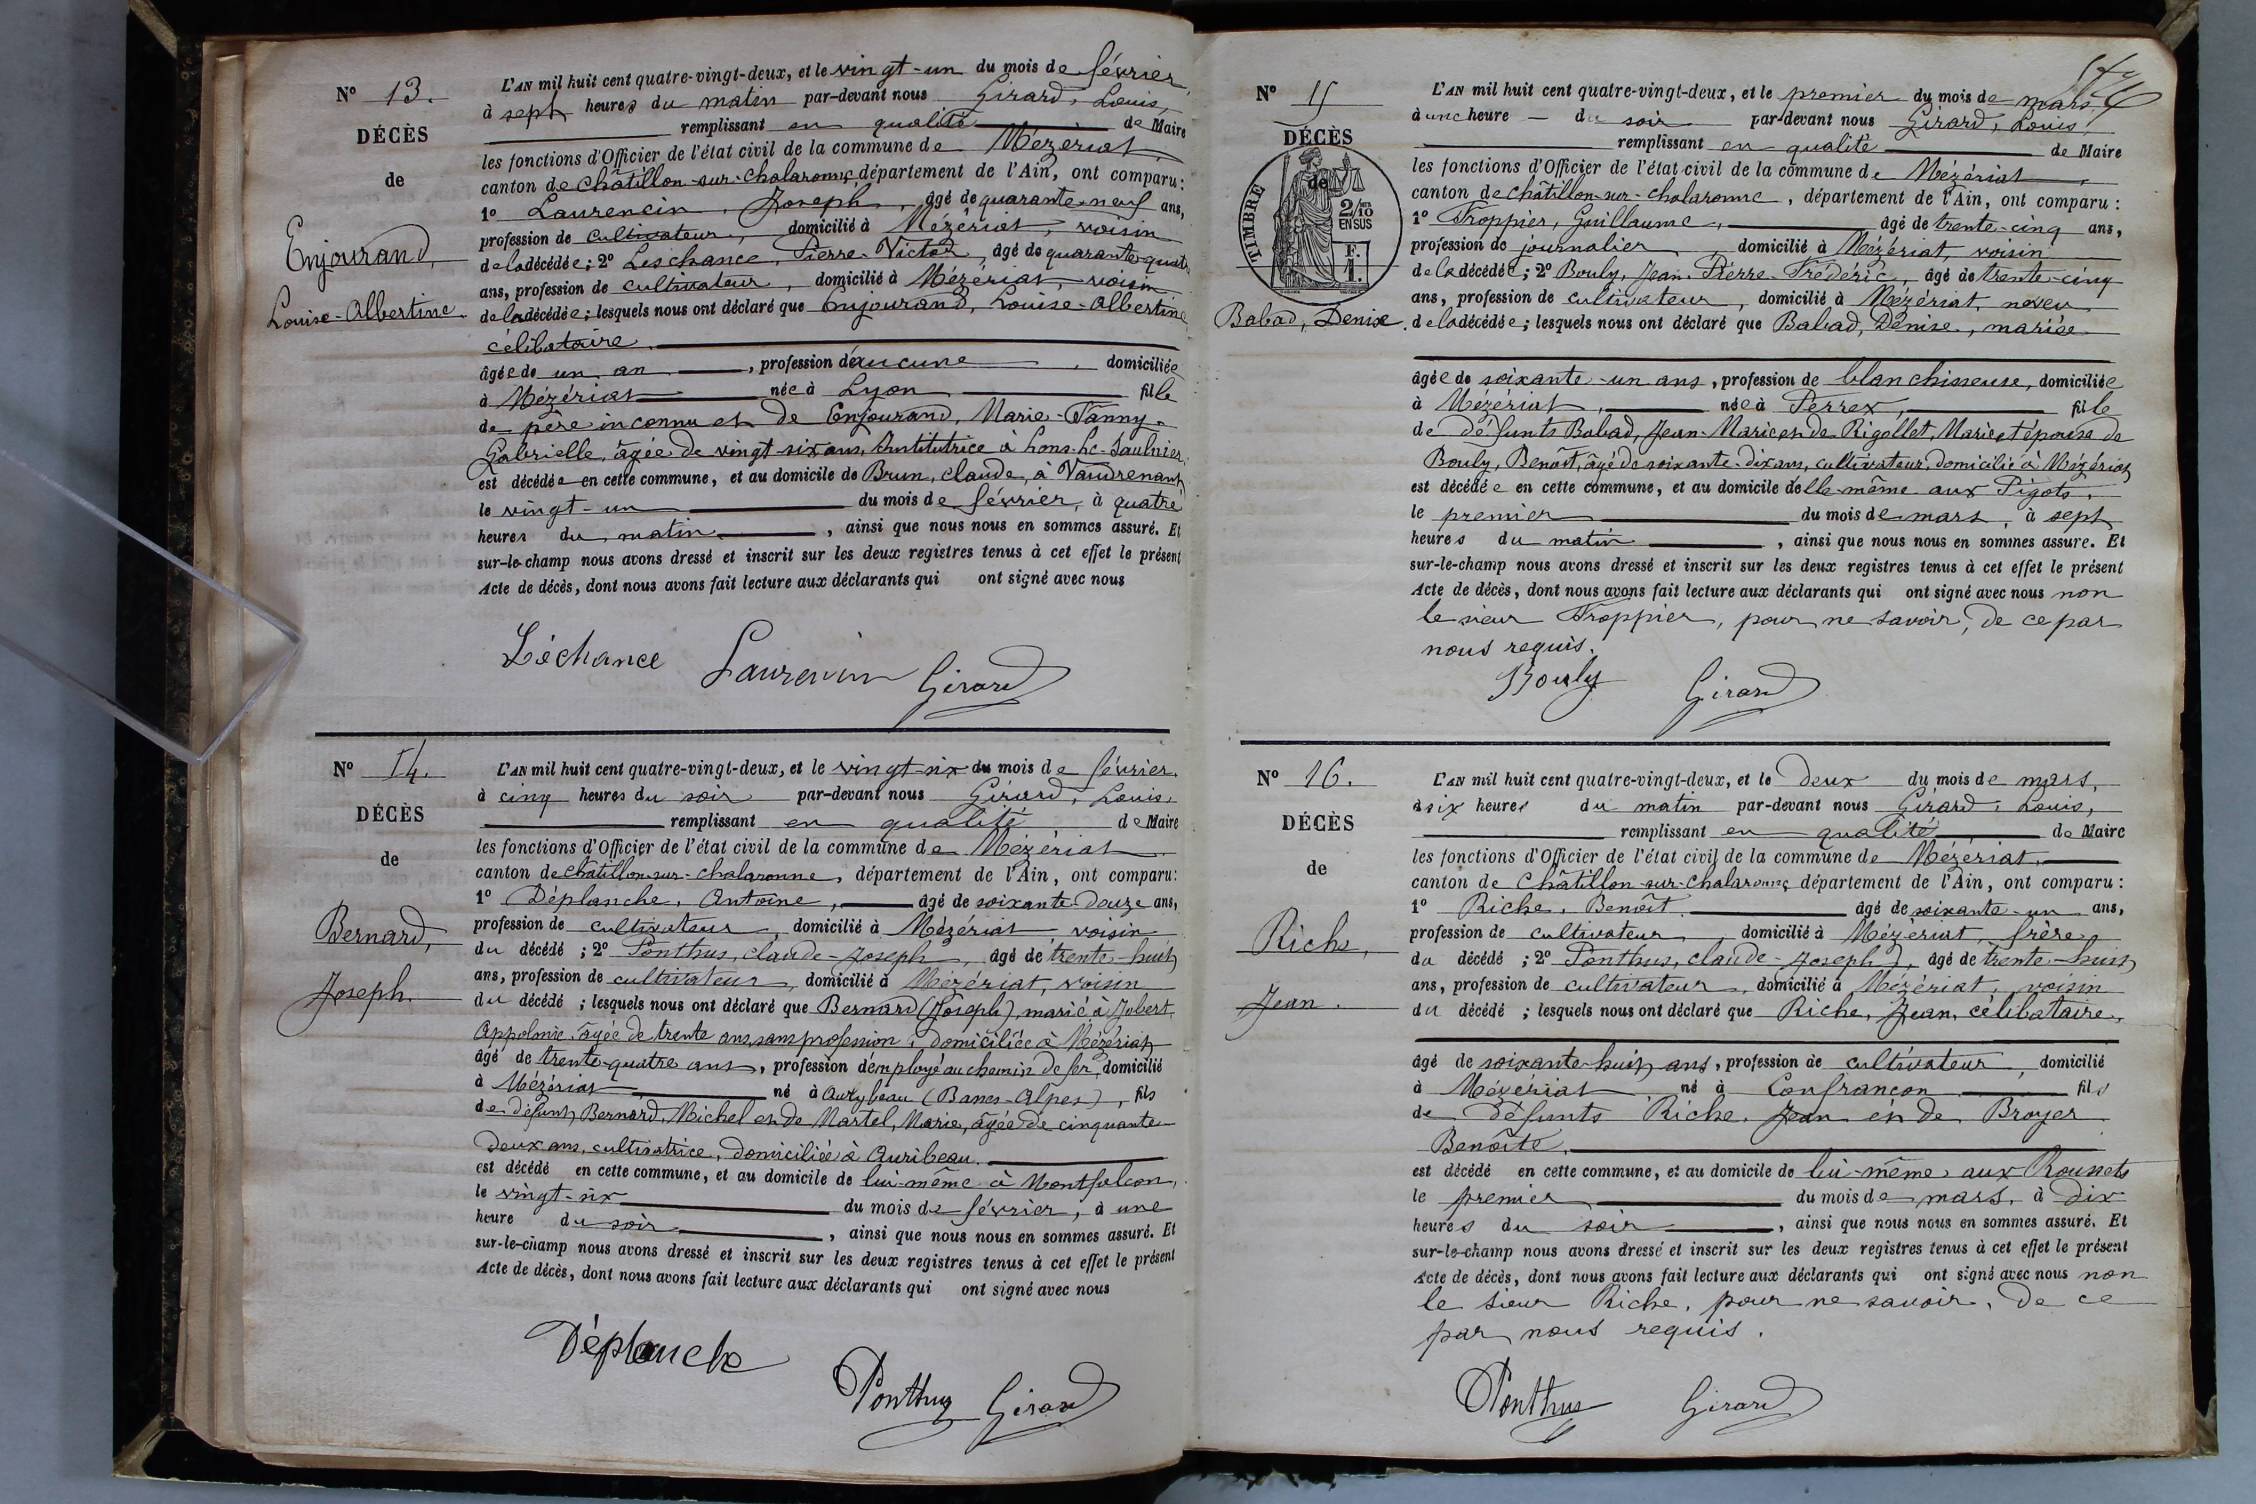 N° 13.
DÉCÈS
de
Enjourand,
Louise-Albertine
L'AN mil huit cent quatre-vingt-deux, et le vingt-un du mois de février,
à sept heures du matin par-devant nous Girard, Louis,
remplissant en qualité de Maire
les fonctions d'Officier de l'état civil de la commune de Mézériat,
canton de Châtillon-sur-Chalaronne, département de l'Ain, ont comparu :
1° Laurencin, Joseph, âgé de quarante-neuf ans,
profession de cultivateur, domicilié à Mézériat, voisin
de la décédée ; 2° Leschance, Pierre-Victor, âgé de quarante-quatre
ans, profession de cultivateur, domicilié à Mézériat, voisin
de la décédée ; lesquels nous ont déclaré que Enjourand, Louise-Albertine
célibataire.
âgée de un an, profession d'aucune, domiciliée
à Mézériat née à Lyon fille
de père inconnu et de Enjourand, Marie-Fanny-
Gabrielle, âgée de vingt-six ans, Institutrice à Lons-le-Saulnier,
est décédée en cette commune, et au domicile de Brun, Claude, à Vaudrenant
le vingt-un du mois de février, à quatre
heures du matin, ainsi que nous nous en sommes assuré. Et
sur-le-champ nous avons dressé et inscrit sur les deux registres tenus à cet effet le présent
Acte de décès, dont nous avons fait lecture aux déclarants qui ont signé avec nous
Léchance Laurencin Girard
N° 14.
DÉCÈS
de
Bernard,
Joseph.
L'AN mil huit cent quatre-vingt-deux, et le vingt-six du mois de février.
à cinq heures du soir par-devant nous Girard, Louis,
remplissant en qualité de Maire
les fonctions d'Officier de l'état civil de la commune de Mézériat
canton de Châtillon-sur-Chalaronne, département de l'Ain, ont comparu :
1° Déplanche, Antoine, âgé de soixante-douze ans,
profession de cultivateur, domicilié à Mézériat voisin
du décédé ; 2° Ponthus, Claude-Joseph, âgé de trente-huit
ans, profession de cultivateur, domicilié à Mézériat, voisin
du décédé ; lesquels nous ont déclaré que Bernard (Joseph), marié à Jobert,
Appolonie, âgée de trente ans, sans profession, domiciliée à Mézériat
âgé de trente-quatre ans, profession d'employé au chemin de fer, domicilié
à Mézériat, né à Aurybeau (Basses-Alpes), fils
de défunt Bernard, Michel et de Martel, Marie, âgée de cinquante-
deux ans, cultivatrice, domiciliée à Auribeau.
est décédé en cette commune, et au domicile de lui-même à Montfalcon,
le vingt-six du mois de février, à une
heure du soir, ainsi que nous nous en sommes assuré. Et
sur-le-champ nous avons dressé et inscrit sur les deux registres tenus à cet effet le présent
Acte de décès, dont nous avons fait lecture aux déclarants qui ont signé avec nous
Déplanche
Ponthus Girard
N° 15
DÉCÈS
de
TIMBRE
2/10
EN SUS
Babad, Denise.
L'AN mil huit cent quatre-vingt-deux, et le premier du mois de mars,
à une heure du soir par-devant nous Girard, Louis,
remplissant en qualité de Maire
les fonctions d'Officier de l'état civil de la commune de Mézériat,
canton de Châtillon-sur-Chalaronne, département de l'Ain, ont comparu :
1° Froppier, Guillaume, âgé de trente-cinq ans,
profession de journalier domicilié à Mézériat, voisin
de la décédée ; 2° Bouly, Jean-Pierre-Frédéric, âgé de trente-cinq
ans, profession de cultivateur, domicilié à Mézériat, neveu
de la décédée ; lesquels nous ont déclaré que Babad, Denise, mariée
âgée de soixante-un ans, profession de blanchisseuse, domiciliée
à Mézériat, née à Perrex, fille
de défunts Babad, Jean-Marie et de Rigollet, Marie et épouse de
Bouly, Benoît, âgé de soixante-dix ans, cultivateur, domicilié à Mézériat
est décédée en cette commune, et au domicile d'elle-même aux Pigots,
le premier du mois de mars, à sept
heures du matin, ainsi que nous nous en sommes assuré. Et
sur-le-champ nous avons dressé et inscrit sur les deux registres tenus à cet effet le présent
Acte de décès, dont nous avons fait lecture aux déclarants qui ont signé avec nous non
le sieur Froppier, pour ne savoir, de ce par
nous requis.
Bouly Girard
N° 16.
DÉCÈS
de
Riche,
Jean.
L'AN mil huit cent quatre-vingt-deux, et le deux du mois de mars,
à six heures du matin par-devant nous Girard, Louis,
remplissant en qualité de Maire
les fonctions d'Officier de l'état civil de la commune de Mézériat.
canton de Châtillon-sur-Chalaronne, département de l'Ain, ont comparu :
1° Riche, Benoît. âgé de soixante-un ans,
profession de cultivateur, domicilié à Mézériat, frère
du décédé ; 2° Ponthus, Claude-Joseph, âgé de trente-huit
ans, profession de cultivateur, domicilié à Mézériat, voisin
du décédé ; lesquels nous ont déclaré que Riche, Jean, célibataire,
âgé de soixante-huit ans, profession de cultivateur, domicilié
à Mézériat né à Confrançon fils
de défunts Riche, Jean et de Broyer
Benoîte.
est décédé en cette commune, et au domicile de lui-même aux Roussets
le premier du mois de mars, à dix
heures du soir, ainsi que nous nous en sommes assuré. Et
sur-le-champ nous avons dressé et inscrit sur les deux registres tenus à cet effet le présent
Acte de décès, dont nous avons fait lecture aux déclarants qui ont signé avec nous non
le sieur Riche, pour ne savoir, de ce
par nous requis.
Ponthus Girard